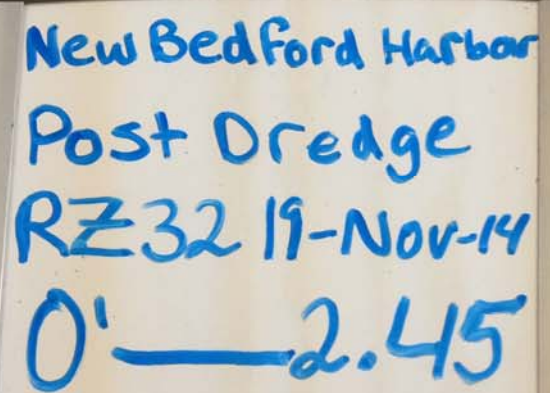 New Bedford Harbor
Post Dredge
RZ32 19-Nov-14
0'—2.45